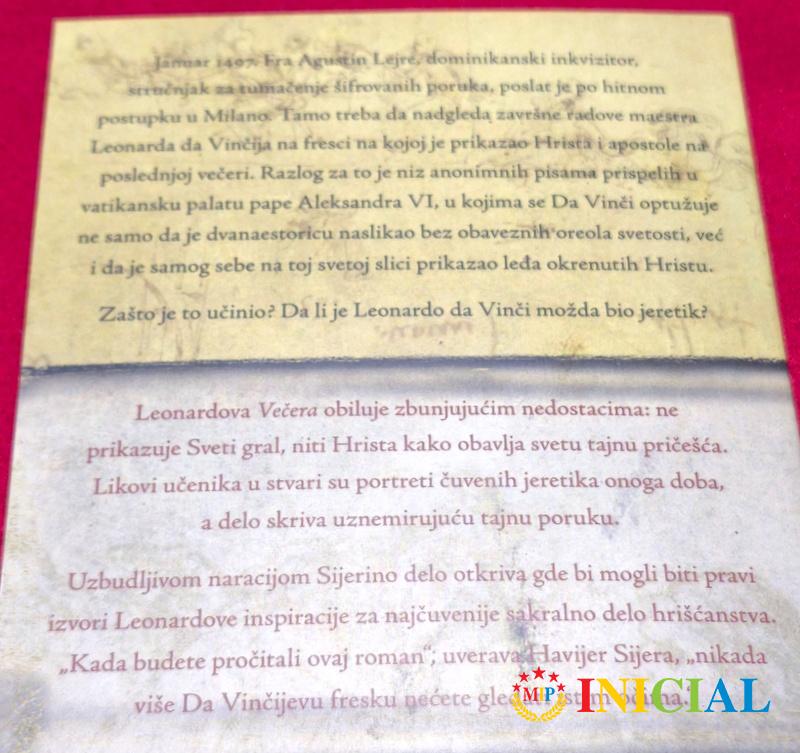 Januar 1497. Fra Agustin Lejre, dominikanski inkvizitor,
stručnjak za tumačenje šifrovanih poruka, poslat je po hitnom
postupku u Milano. Tamo treba da nadgleda završne radove maestra
Leonarda da Vinčija na fresci na kojoj je prikazao Hrista i apostole na
poslednjoj večeri. Razlog za to je niz anonimnih pisama prispelih u
vatikansku palatu pape Aleksandra VI, u kojima se Da Vinči optužuje
ne samo da je dvanaestoricu naslikao bez obaveznih oreola svetosti, već
i da je samog sebe na toj svetoj slici prikazao leđa okrenutih Hristu.
Zašto je to učinio? Da li je Leonardo da Vinči možda bio jeretik?
Leonardova Večera obiluje zbunjujućim nedostacima: ne
prikazuje Sveti gral, niti Hrista kako obavlja svetu tajnu pričešća.
Likovi učenika u stvari su portreti čuvenih jeretika onoga doba,
a delo skriva uznemirujuću tajnu poruku.
Uzbudljivom naracijom Sijerino delo otkriva gde bi mogli biti pravi
izvori Leonardove inspiracije za najčuvenije sakralno delo hrišćanstva.
„Kada budete pročitali ovaj roman“, uverava Havijer Sijera, „nikada
više Da Vinčijevu fresku nećete
MIP INICIAL